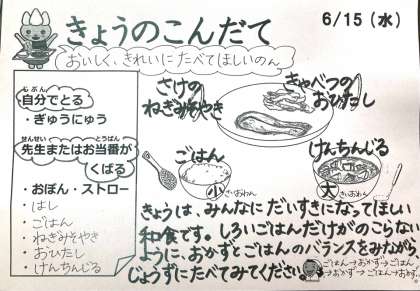 きょうのこんだて
6/15(水)
おいしく、きれいに たべてほしいのん
じぶん
自分でとる
・ぎゅうにゅう
せんせい とうばん
先生またはお当番が
くばる
・おぼん・ストロー
・はし
・ごはん
・ねぎみそやき
・おひたし
・けんちんじる
さけの
ねぎみそやき
きゃべつの
おひたし
ごはん
小
さいおわん
けんちんじる
大
さいおわん
きょうは、みんなに だいすきになってほしい
和食です。しろいごはんだけがのこらない
ように、おかずとごはんのバランスをみながら
じょうずにたべてみてください。
ごはん→おかず→ごはん
→おかず→ごはん→おかず